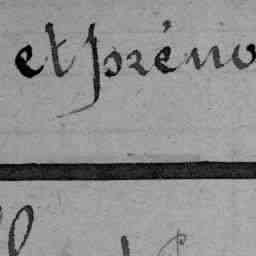 et préno